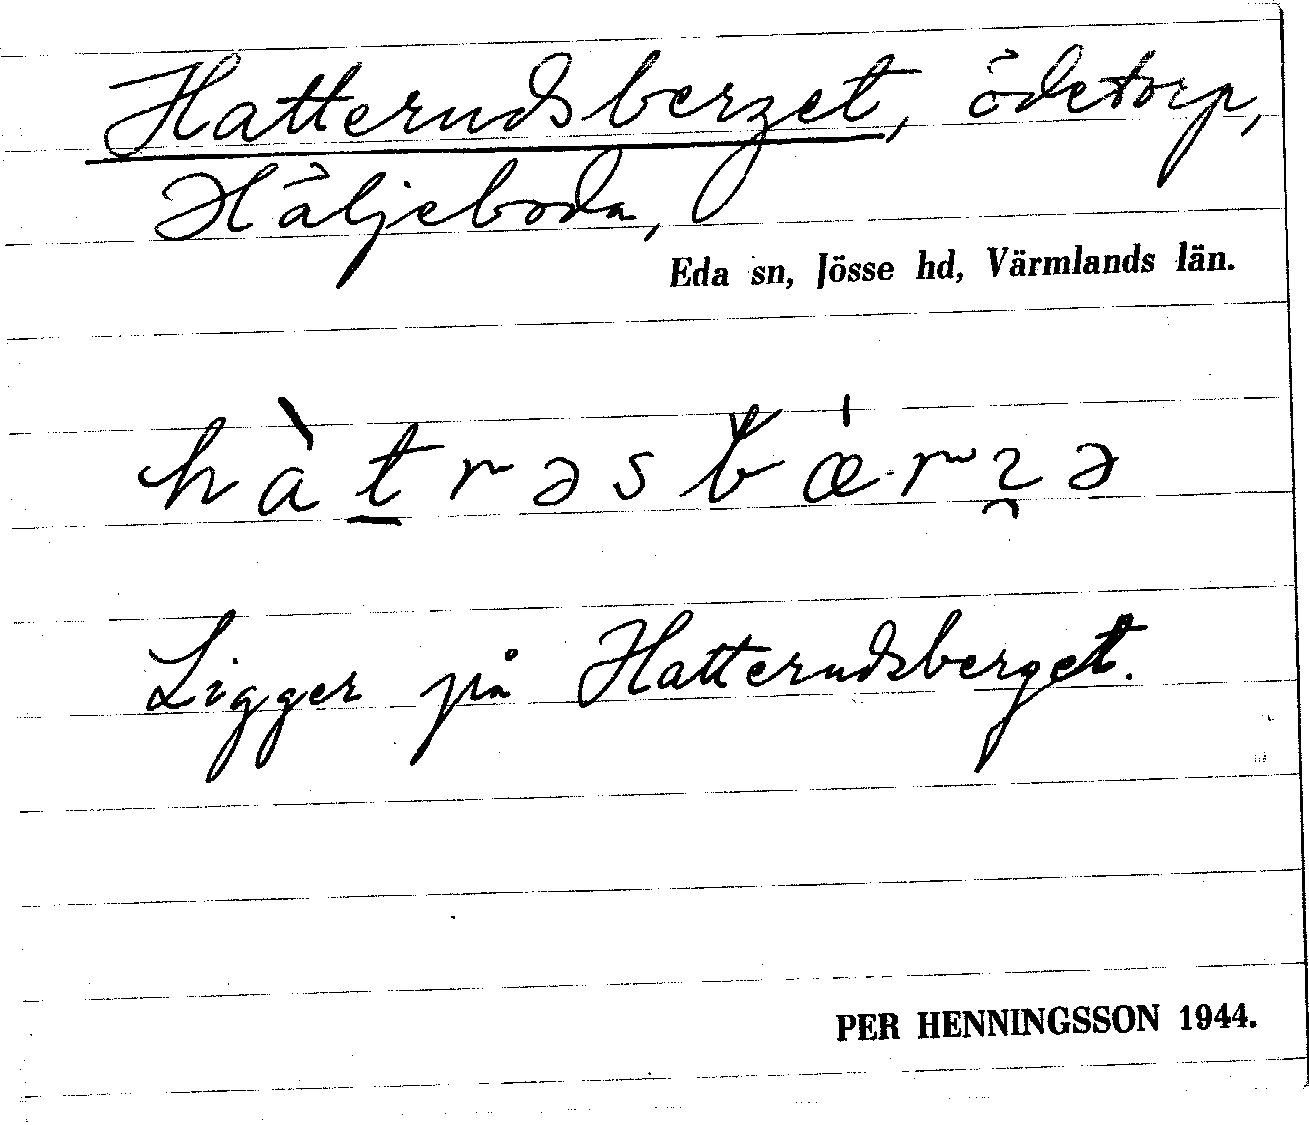 Hatterudsberget, ödetorp,
Häljeboda,
Eda sn, Jösse hd, Värmlands län.
hàt̲rəsbæ̌́rʒ̑ə
Ligger på Hatterudsberget.
PER HENNINGSSON 1944.